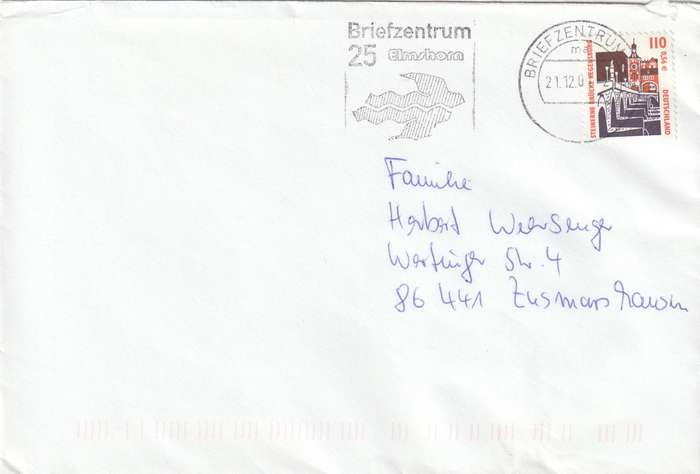 Briefzentrum
25 Elmshorn
BRIEFZENTRUM
ma
21.12.0
110
0,56 €
STEINERNE BRÜCKE REGENSBURG
DEUTSCHLAND
Familie
Herbert
Wertinger Str. 4
86 441 Zusmarshausen